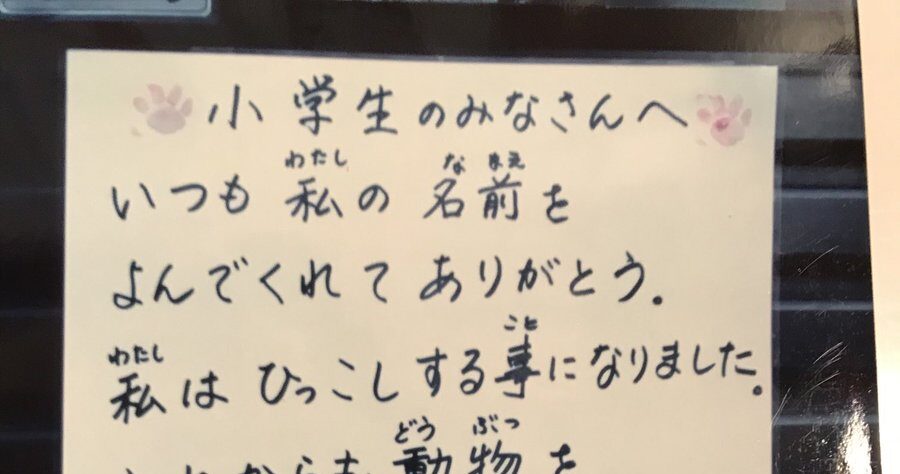 小学生のみなさんへ
わたし なまえ
いつも私の名前を
よんでくれてありがとう。
わたし こと
私はひっこしする事になりました。
どう ぶつ
動物を